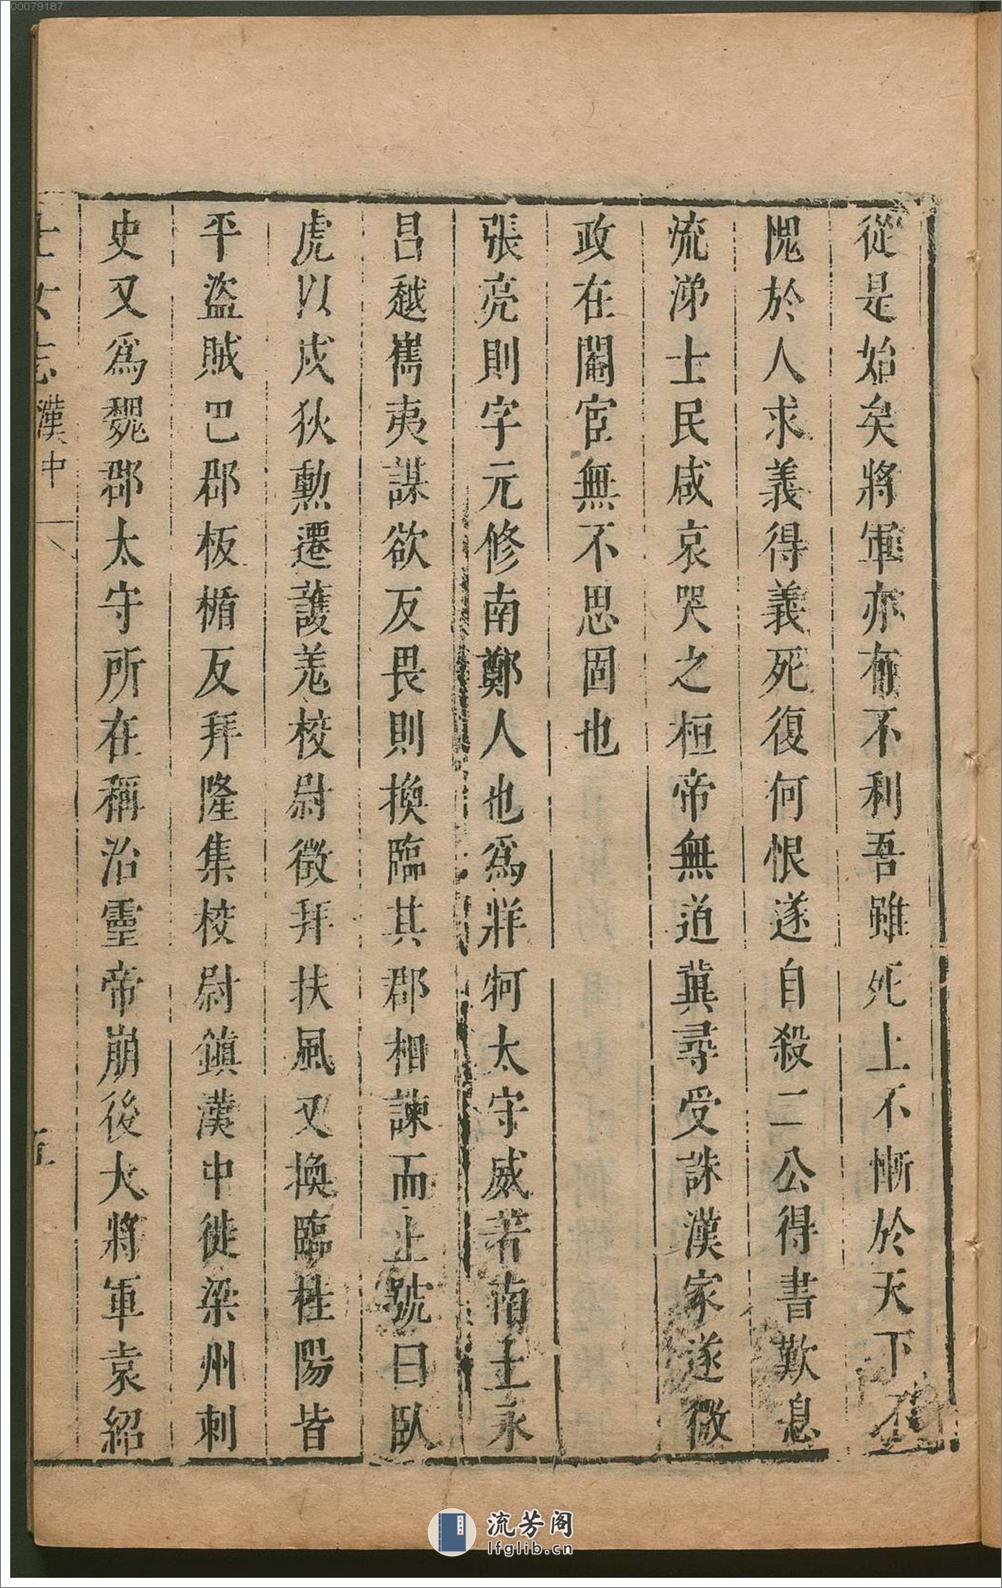 00079187
從是始矣將軍亦有不利吾雖死上不慚於天下不
愧於人求義得義死復何恨遂自殺二公得書歎息
流涕士民咸哀哭之桓帝無道冀尋受誅漢家遂微
政在閹宦無不思固也
張亮則字元修南鄭人也爲牂牁太守威若南土永
昌越雟夷謀欲反畏則換臨其郡相諫而止號曰臥
虎以戍狄勲遷護羌校尉徵拜扶風又換臨桂陽皆
平盜賊巴郡板楯反拜隆集校尉鎮漢中徙梁州刺
史又爲魏郡太守所在稱治靈帝崩後大將軍袁紹
士女志 漢中 五
流芳阁
lfglib.cn